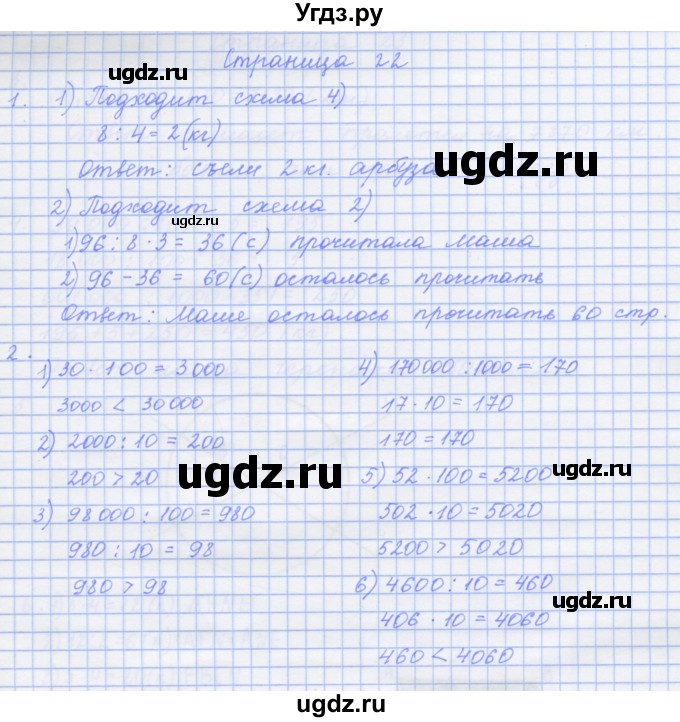 Угдз.ру
Страница 22
1. 1) Подходит схема 4)
8 : 4 = 2 (кг)
Ответ: съели 2 кг. арбуза
2) Подходит схема 2)
1) 96 : 8 · 3 = 36 (с) прочитала Маша
2) 96 - 36 = 60 (с) осталось прочитать
Ответ: Маше осталось прочитать 60 стр.
2.
1) 30 · 100 = 3000
3000 < 30000
2) 2000 : 10 = 200
200 > 20
3) 98000 : 100 = 980
980 : 10 = 98
980 > 98
4) 170000 : 1000 = 170
17 · 10 = 170
170 = 170
5) 52 · 100 = 5200
502 · 10 = 5020
5200 > 5020
6) 4600 : 10 = 460
406 · 10 = 4060
460 < 4060
ugdz.ru
ugdz.ru
ugdz.ru
ugdz.ru
ugdz.ru
ugdz.ru
ugdz.ru
ugdz.ru